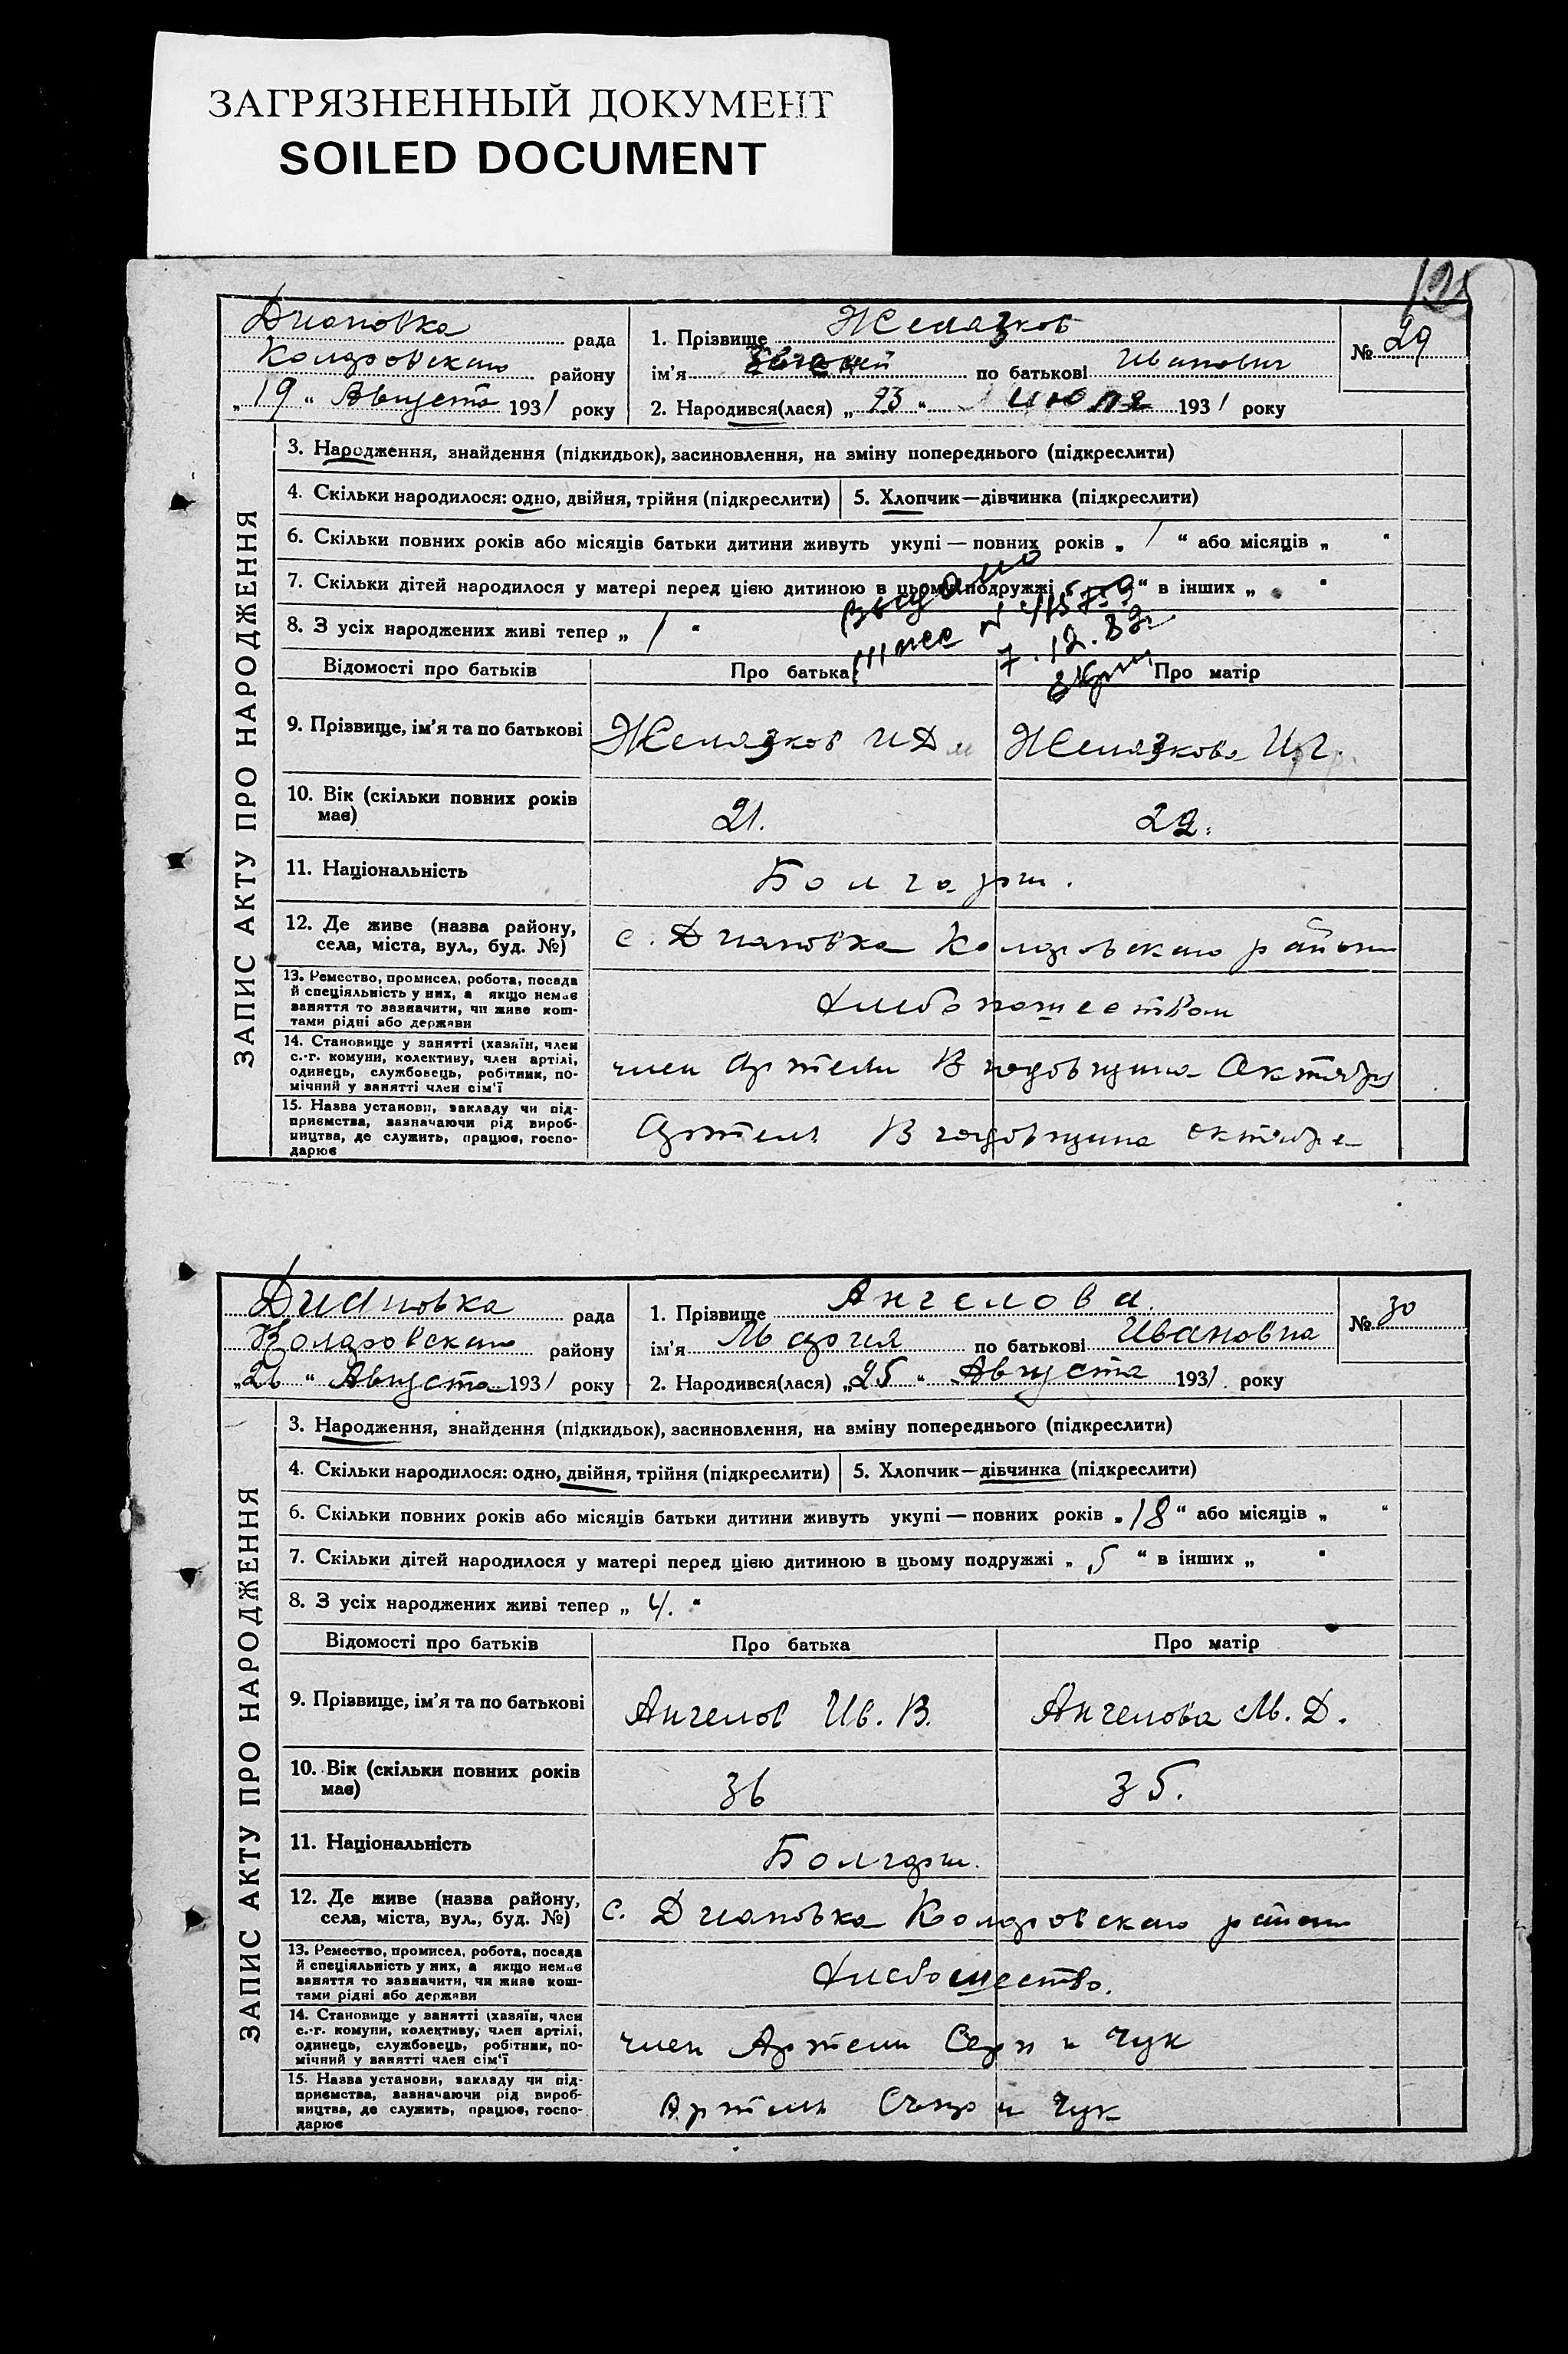 ЗАГРЯЗНЕННЫЙ ДОКУМЕНТ
SOILED DOCUMENT
125
Диановка рада
Коларовского району
„19“ Августа 1931 року
1. Прізвище Желязков
ім'я Евгений по батькові Иванович
2. Народився(лася) „23“ июля 1931 року
№ 29
ЗАПИС АКТУ ПРО НАРОДЖЕННЯ
3. Народження, знайдення (підкидьок), засиновлення, на зміну попереднього (підкреслити)
4. Скільки народилося: одно, двійня, трійня (підкреслити) 5. Хлопчик—дівчинка (підкреслити)
6. Скільки повних років або місяців батьки дитини живуть укупі — повних років „ 1 “ або місяців „ “
7. Скільки дітей народилося у матері перед цією дитиною в цьому подружжі „ “ в інших „ “
8. З усіх народжених живі тепер „ 1 “
Выдано
7.12.83г
Відомості про батьків Про батька Про матір
9. Прізвище, ім'я та по батькові Желязков И Д Желязкова И.
10. Вік (скільки повних років має) 21. 22.
11. Національність Болгары.
12. Де живе (назва району, села, міста, вул., буд. №) с. Диановка Коларовского района
13. Ремество, промисел, робота, посада
й спеціяльність у них, а якщо немає
заняття то зазначити, чи живе кош-
тами рідні або держави
Хлебопашеством
14. Становище у занятті (хазяїн, член
с.-г. комуни, колективу, член артілі,
одинець, службовець, робітник, по-
мічний у занятті член сім'ї
член Артели годовщина Октября
15. Назва установи, закладу чи під-
приємства, зазначаючи рід вироб-
ництва, де служить, працює, госпо-
дарює
Артель годовщина октября
Диановка рада
Коларовского району
„26“ Августа 1931 року
1. Прізвище Ангелова
ім'я Мария по батькові Ивановна
2. Народився(лася) „25“ Августа 1931 року
№ 30
ЗАПИС АКТУ ПРО НАРОДЖЕННЯ
3. Народження, знайдення (підкидьок), засиновлення, на зміну попереднього (підкреслити)
4. Скільки народилося: одно, двійня, трійня (підкреслити) 5. Хлопчик—дівчинка (підкреслити)
6. Скільки повних років або місяців батьки дитини живуть укупі — повних років „ 18 “ або місяців „ “
7. Скільки дітей народилося у матері перед цією дитиною в цьому подружжі „ 5 “ в інших „ “
8. З усіх народжених живі тепер „ 4. “
Відомості про батьків Про батька Про матір
9. Прізвище, ім'я та по батькові Ангелов Ив. В. Ангелова М. Д.
10. Вік (скільки повних років має) 36 35.
11. Національність Болгары.
12. Де живе (назва району, села, міста, вул., буд. №) с. Диановка Коларовского района
13. Ремество, промисел, робота, посада
й спеціяльність у них, а якщо немає
заняття то зазначити, чи живе кош-
тами рідні або держави
14. Становище у занятті (хазяїн, член
с.-г. комуни, колективу, член артілі,
одинець, службовець, робітник, по-
мічний у занятті член сім'ї
член Артели Серп и Чук
15. Назва установи, закладу чи під-
приємства, зазначаючи рід вироб-
ництва, де служить, працює, госпо-
дарює
Артель Серп и Чук